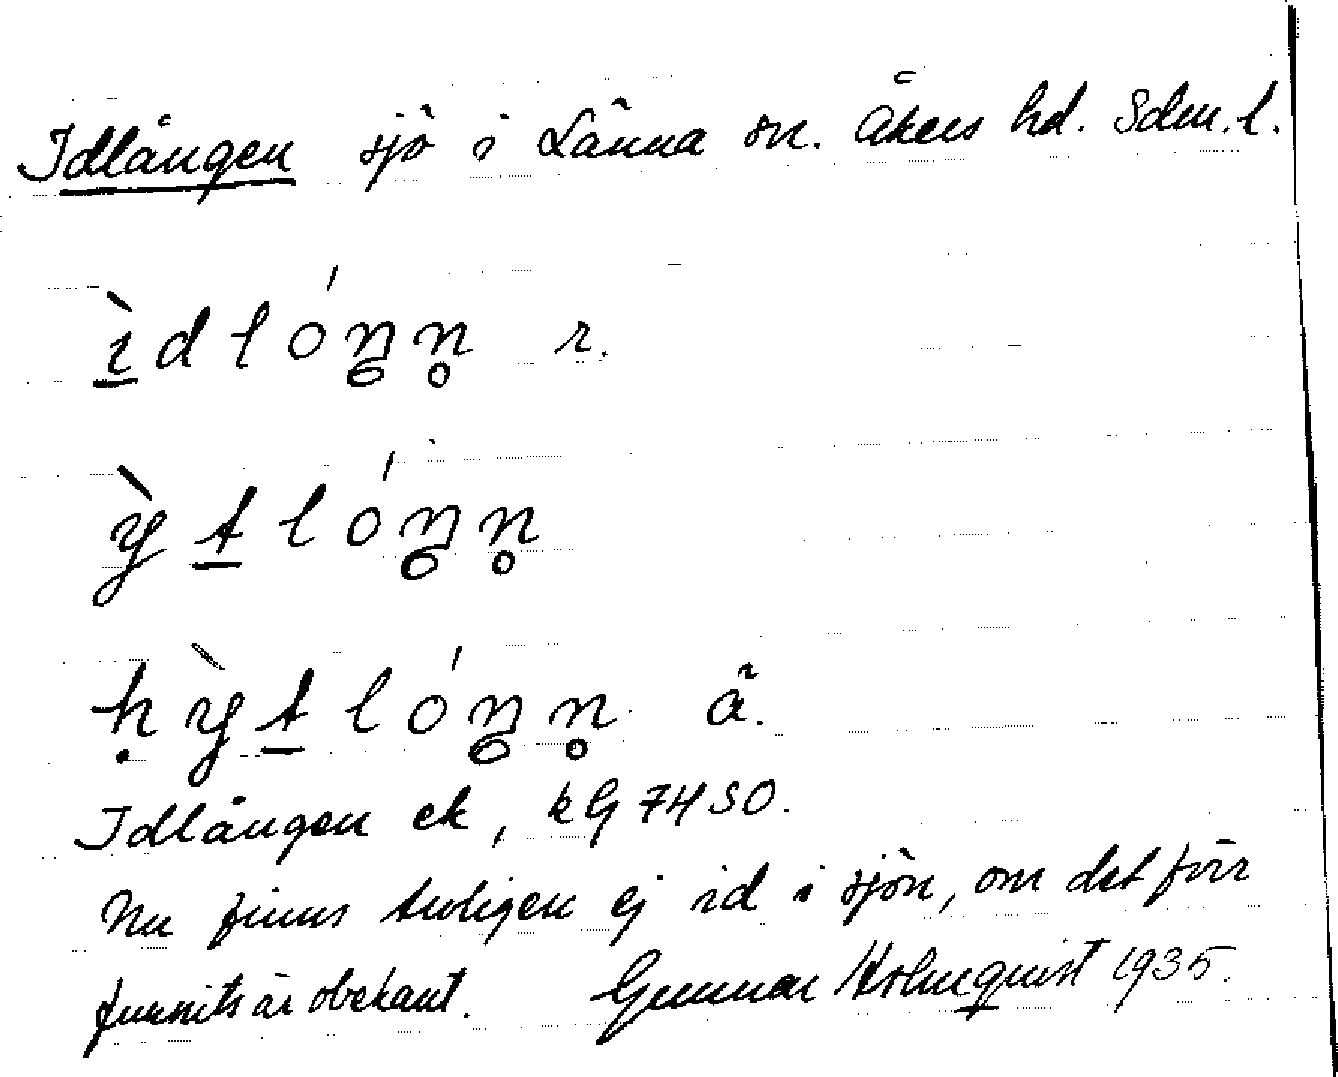 Idlången sjö i Länna sn. Åkers hd. Sdm. l.
ìdlóŋn̥ r.
ỳtlóŋn̥
ḥỳtlóŋn̥ ä.
Idlången ek, kG 7430.
Nu finns troligen ej id i sjön, om det förr
funnits är obekant. Gunnar Holmquist 1935.